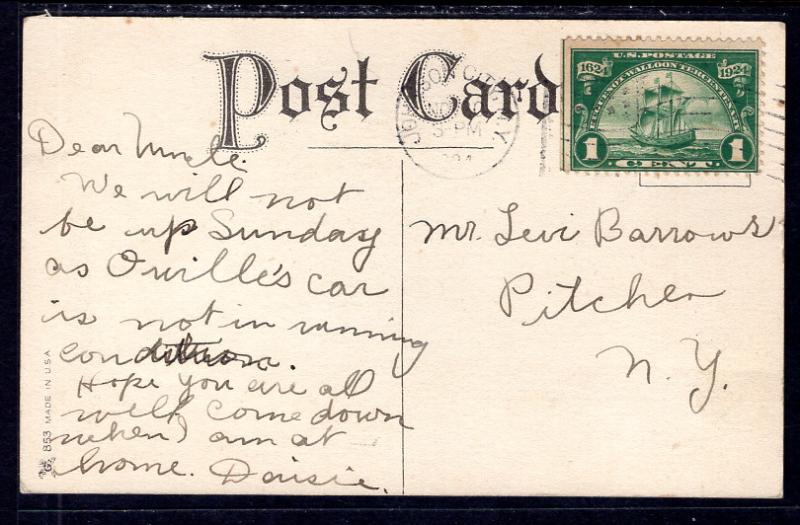 Post Card
U.S. POSTAGE
1624 1924
HUGUENOT-WALLOON TERCENTENARY
1 CENT 1
JOHNSON CITY
NO
3-PM
N.Y.
Dear Uncle.
We will not
be up Sunday
as Orville's car
is not in running
condition.
Hope you are all
well come down
when I am at
home. Daisie.
Mr. Levi Barrows
Pitcher
N. Y.
853 MADE IN U.S.A.